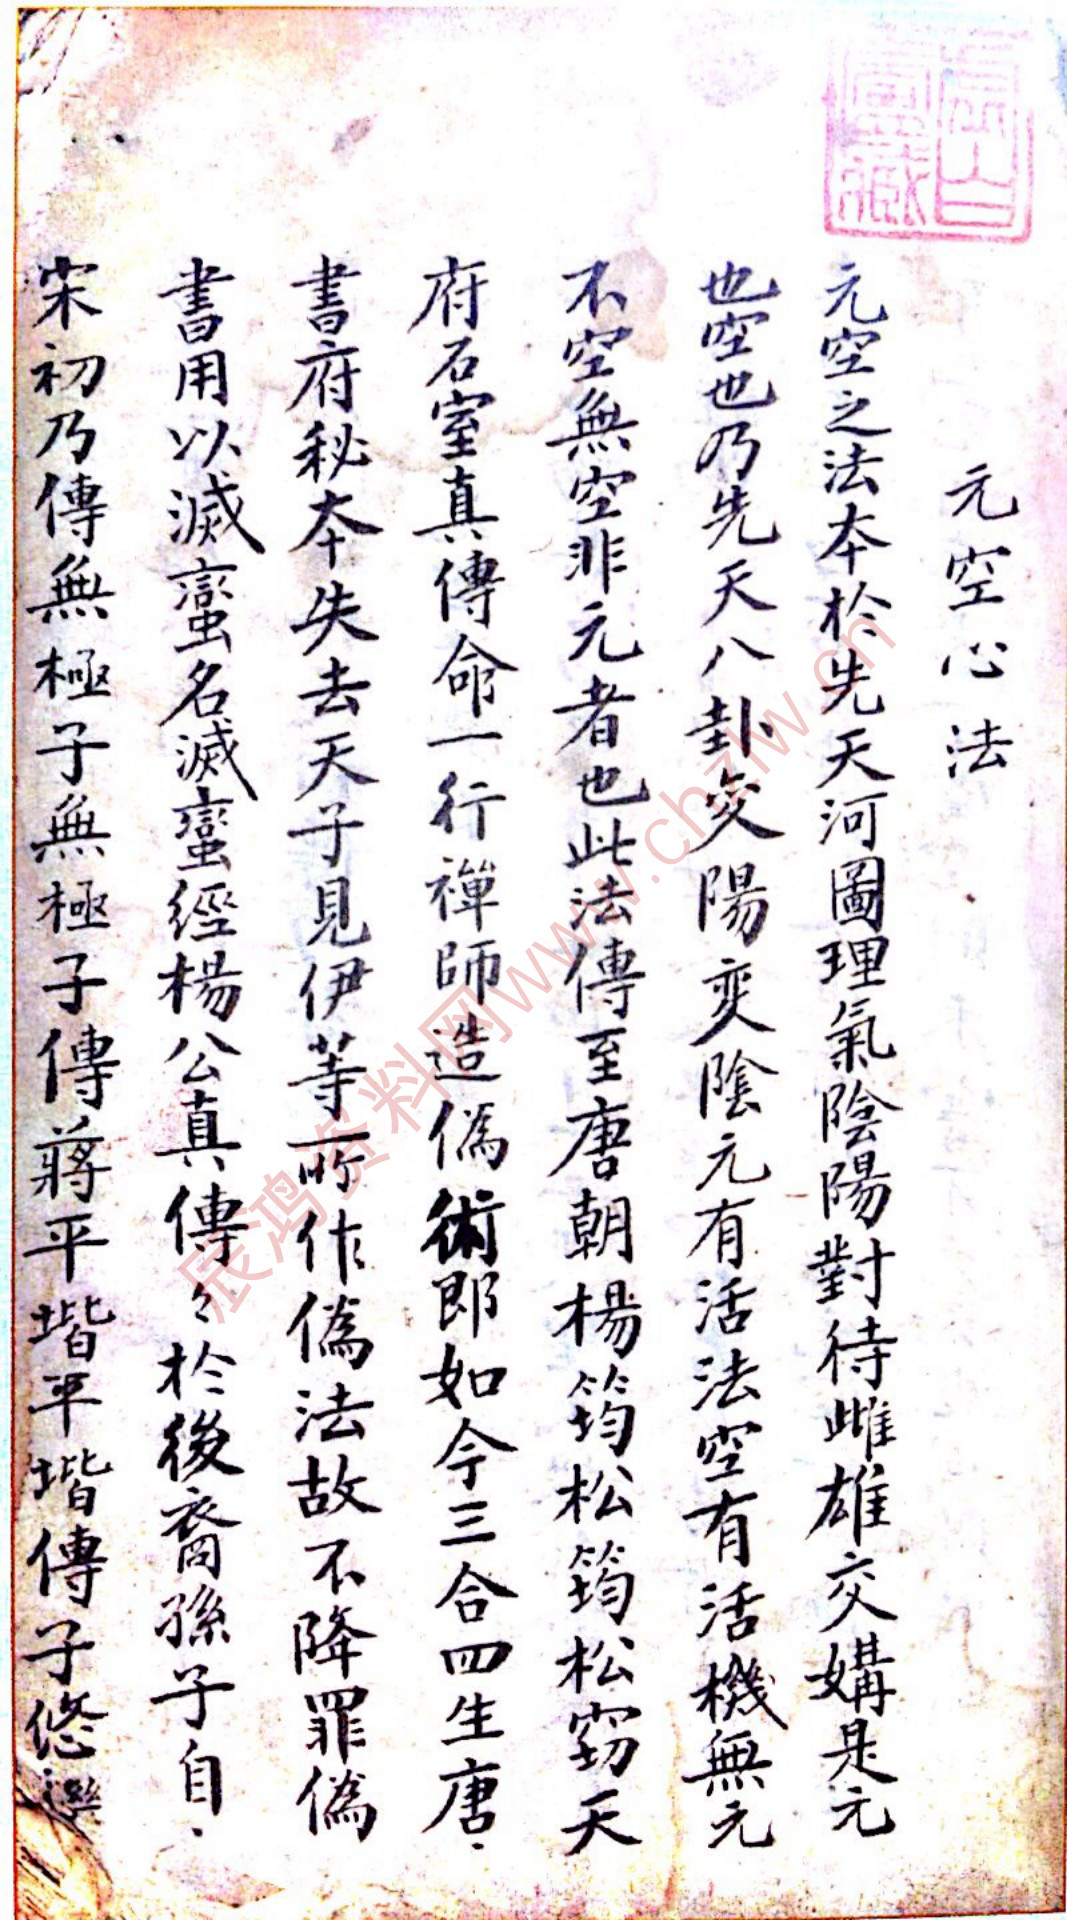 元空心法
元空之法本於先天河圖理氣陰陽對待雌雄交媾是元
也空也乃先天八卦交陽交陰元有活法空有活機無元
不空無空非元者也此法傳至唐朝楊筠松筠松竊天
府石室真傳命一行禪師造偽術即如今三合四生唐
書府秘本失去天子見伊等所作偽法故不降罪偽
書用以滅蠻名滅蠻經楊公真傳々於後裔孫子自
宋初乃傳無極子無極子傳蔣平堦平堦傳子悠
辰鸿资料网www.chzlw.cn